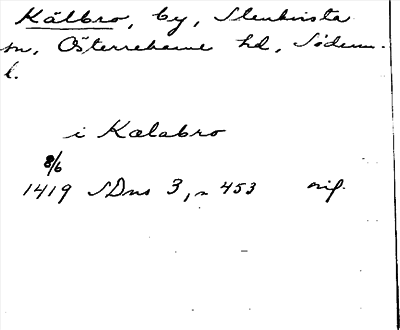 Kälbro, by, Stenkvista
sn, Österrekarne hd, Söderm.
l.
i Kalabro
8/6
1419 SDns 3, s 453 orig.